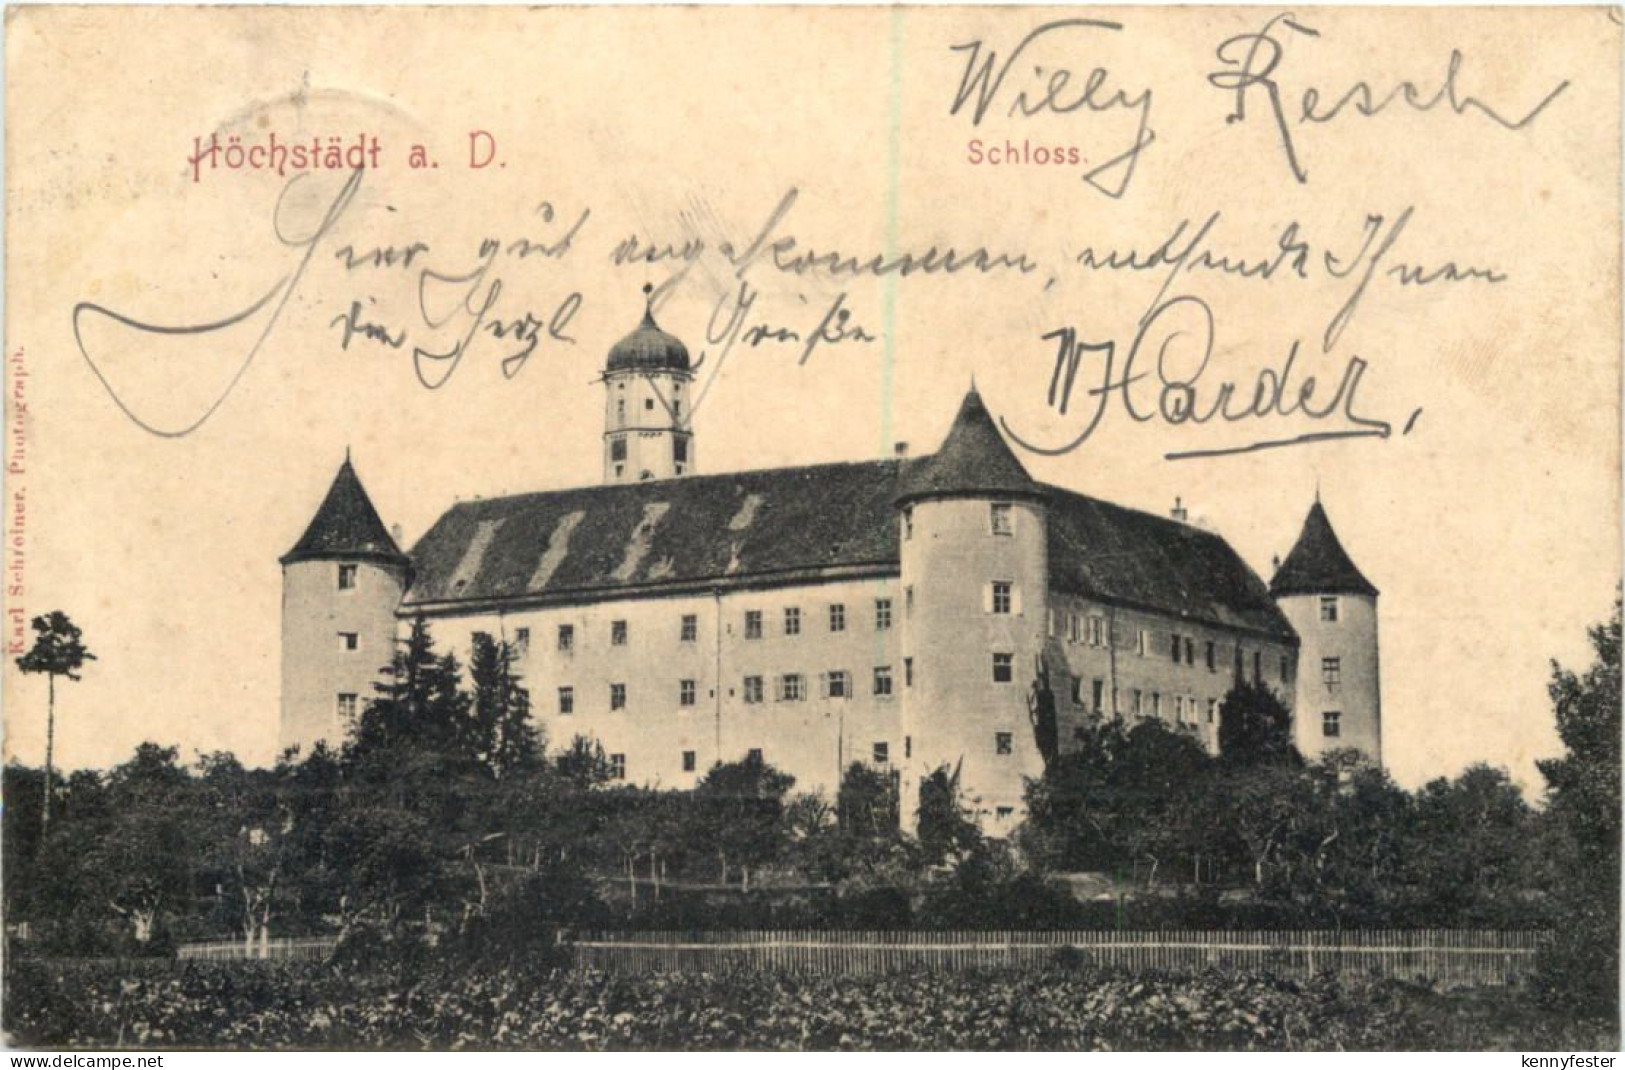 Willy Resch
Höchstädt a. D.
Schloss.
Hier gut angekommen, entsende Ihnen
die Herzl Grüße
Harder
Karl Schreiner, Photograph.
www.delcampe.net
kennyfester